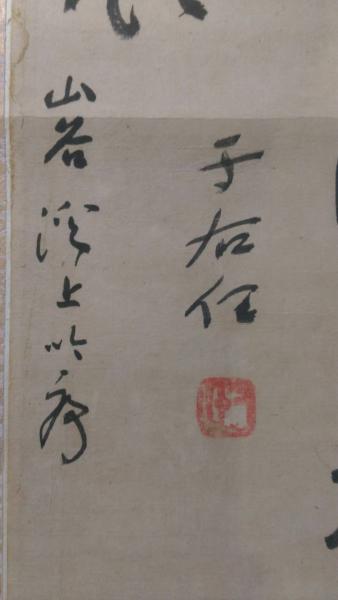 于右任
山谷溪上吟序